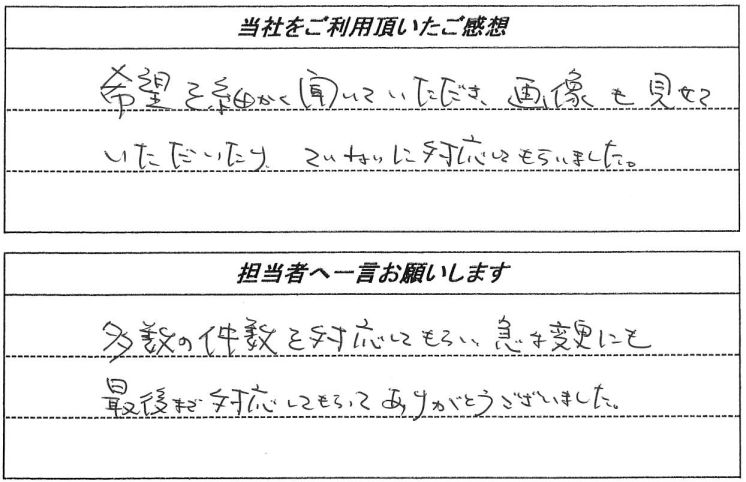 当社をご利用頂いたご感想
希望を細かく聞いていただき、画像も見せて
いただいたり ていねいに対応してもらいました。
担当者へ一言お願いします
多数の件数を対応してもらい、急な変更にも
最後まで対応してもらってありがとうございました。